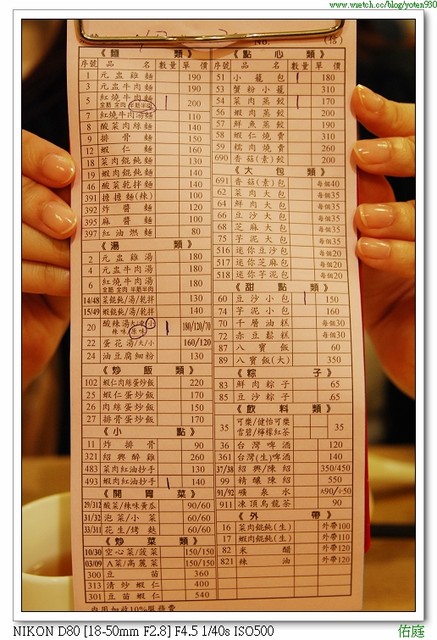 www.wretch.cc/blog/yoten930
No. (信)
《麵 類》
序號 品 名 數量 單價
1 元盅雞麵 190
3 元盅牛肉麵 190
5 紅燒牛肉麵 1 200
7 紅燒牛肉湯麵 110
8 酸菜肉絲麵 140
9 排骨麵 150
12 蝦仁麵 160
18 菜肉餛飩麵 130
19 蝦肉餛飩麵 140
46 酸菜乾拌麵 140
391 擔擔麵(辣) 100
392 炸醬麵 120
395 麻醬麵 100
397 紅油燃麵 80
《湯 類》
2 元盅雞湯 180
4 元盅牛肉湯 180
6 紅燒牛肉湯 190
14/48 菜餛飩/湯/乾拌 130
15/49 蝦餛飩/湯/乾拌 140
20 酸辣湯大/中/小 1 180/120/70
22 蛋花湯/大/小 160/120
24 油豆腐細粉 130
《炒飯類》
102 蝦仁肉絲蛋炒飯 220
25 蝦仁蛋炒飯 170
26 肉絲蛋炒飯 150
27 排骨蛋炒飯 170
《小 點》
11 炸排骨 90
321 紹興醉雞 260
483 菜肉紅油抄手 130
493 蝦肉紅油抄手 1 140
《開胃菜》
29/312 酸菜/辣味黃瓜 90/60
31/32 泡菜/小菜 60/60
33/311 花生/烤麩 60/60
《炒菜類》
10/30 空心菜/菠菜 150/150
03/09 A菜/高麗菜 150/150
300 豆苗 360
313 清炒蝦仁 400
311 豆苗蝦仁 540
內用加收10%服務費
《點心類》
序號 品 名 數量 單價
51 小籠包 1 180
53 蟹粉小籠 310
54 菜肉蒸餃 1 170
56 蝦肉蒸餃 200
57 鮮魚蒸餃 190
58 蝦仁燒賣 310
59 糯肉燒賣 260
690 香菇(素)餃 200
《大包類》
691 香菇(素)包 每個40
62 菜肉大包 每個35
64 鮮肉大包 每個35
66 豆沙大包 每個35
68 芝麻大包 每個35
75 芋泥大包 每個35
516 迷你豆沙包 每個20
517 迷你芝麻包 每個20
518 迷你芋泥包 每個20
《甜點類》
60 豆沙小包 1 150
74 芋泥小包 160
70 千層油糕 每個30
72 赤豆鬆糕 每個30
87 八寶飯 60
89 八寶飯(大) 350
《粽 子》
83 鮮肉粽子 65
85 豆沙粽子 65
《飲料類》
35 可樂/健怡可樂 雪碧/檸檬紅茶 35
36 台灣啤酒 120
361 台灣(生)啤酒 140
37/38 紹興/陳紹 350/450
99 精釀陳紹 550
91/92 礦泉水 大90/小50
911 凍頂烏龍茶 90
《外 帶》
16 菜肉餛飩(生) 外帶100
17 蝦肉餛飩(生) 外帶110
82 米醋 外帶120
821 辣油 外帶120
NIKON D80 [18-50mm F2.8] F4.5 1/40s ISO500
佑庭